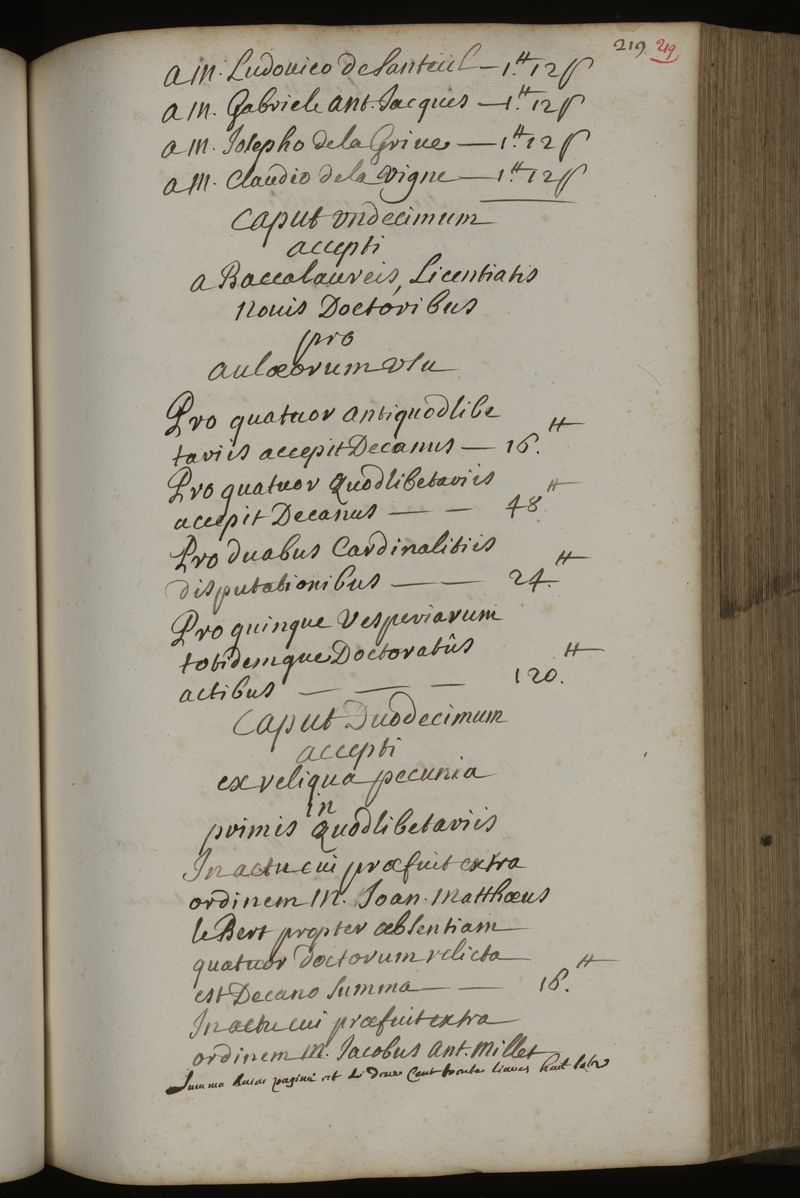 219 219
a M. Ludouico de Santeüil — 1.tt 12 ſ
a M. Gabriele Ant. Jacques — 1.tt 12 ſ
a M. Josepho de la Griue — 1.tt 12 ſ
a M. Claudio de la Vigne — 1.tt 12 ſ
Caput vndecimum
accepti
a Baccalaureis, Licentiatis
nouis Doctoribus
pro
aulæorum vsu
Pro quatuor antiquodlibe
tariis accepit Decanus — 16.tt
Pro quatuor Quodlibetariis
accepit Decanus — — 48.tt
Pro duabus Cardinalitiis
disputationibus — — 24.tt
Pro quinque Vesperiarum
totidemque Doctoratûs
actibus — — — 120.tt
Caput Duodecimum
accepti
ex reliqua pecunia
in
primis Quodlibetariis
In actu cui præfuit extra
ordinem M. Joan. Matthæus
le Bert propter absentiam
quatuor doctorum relicta
est Decano summa — — 16.tt
In actu cui præfuit extra
ordinem M. Jacobus Ant. Millet
Summa huius paginæ est de deux cent trente liures huit sols